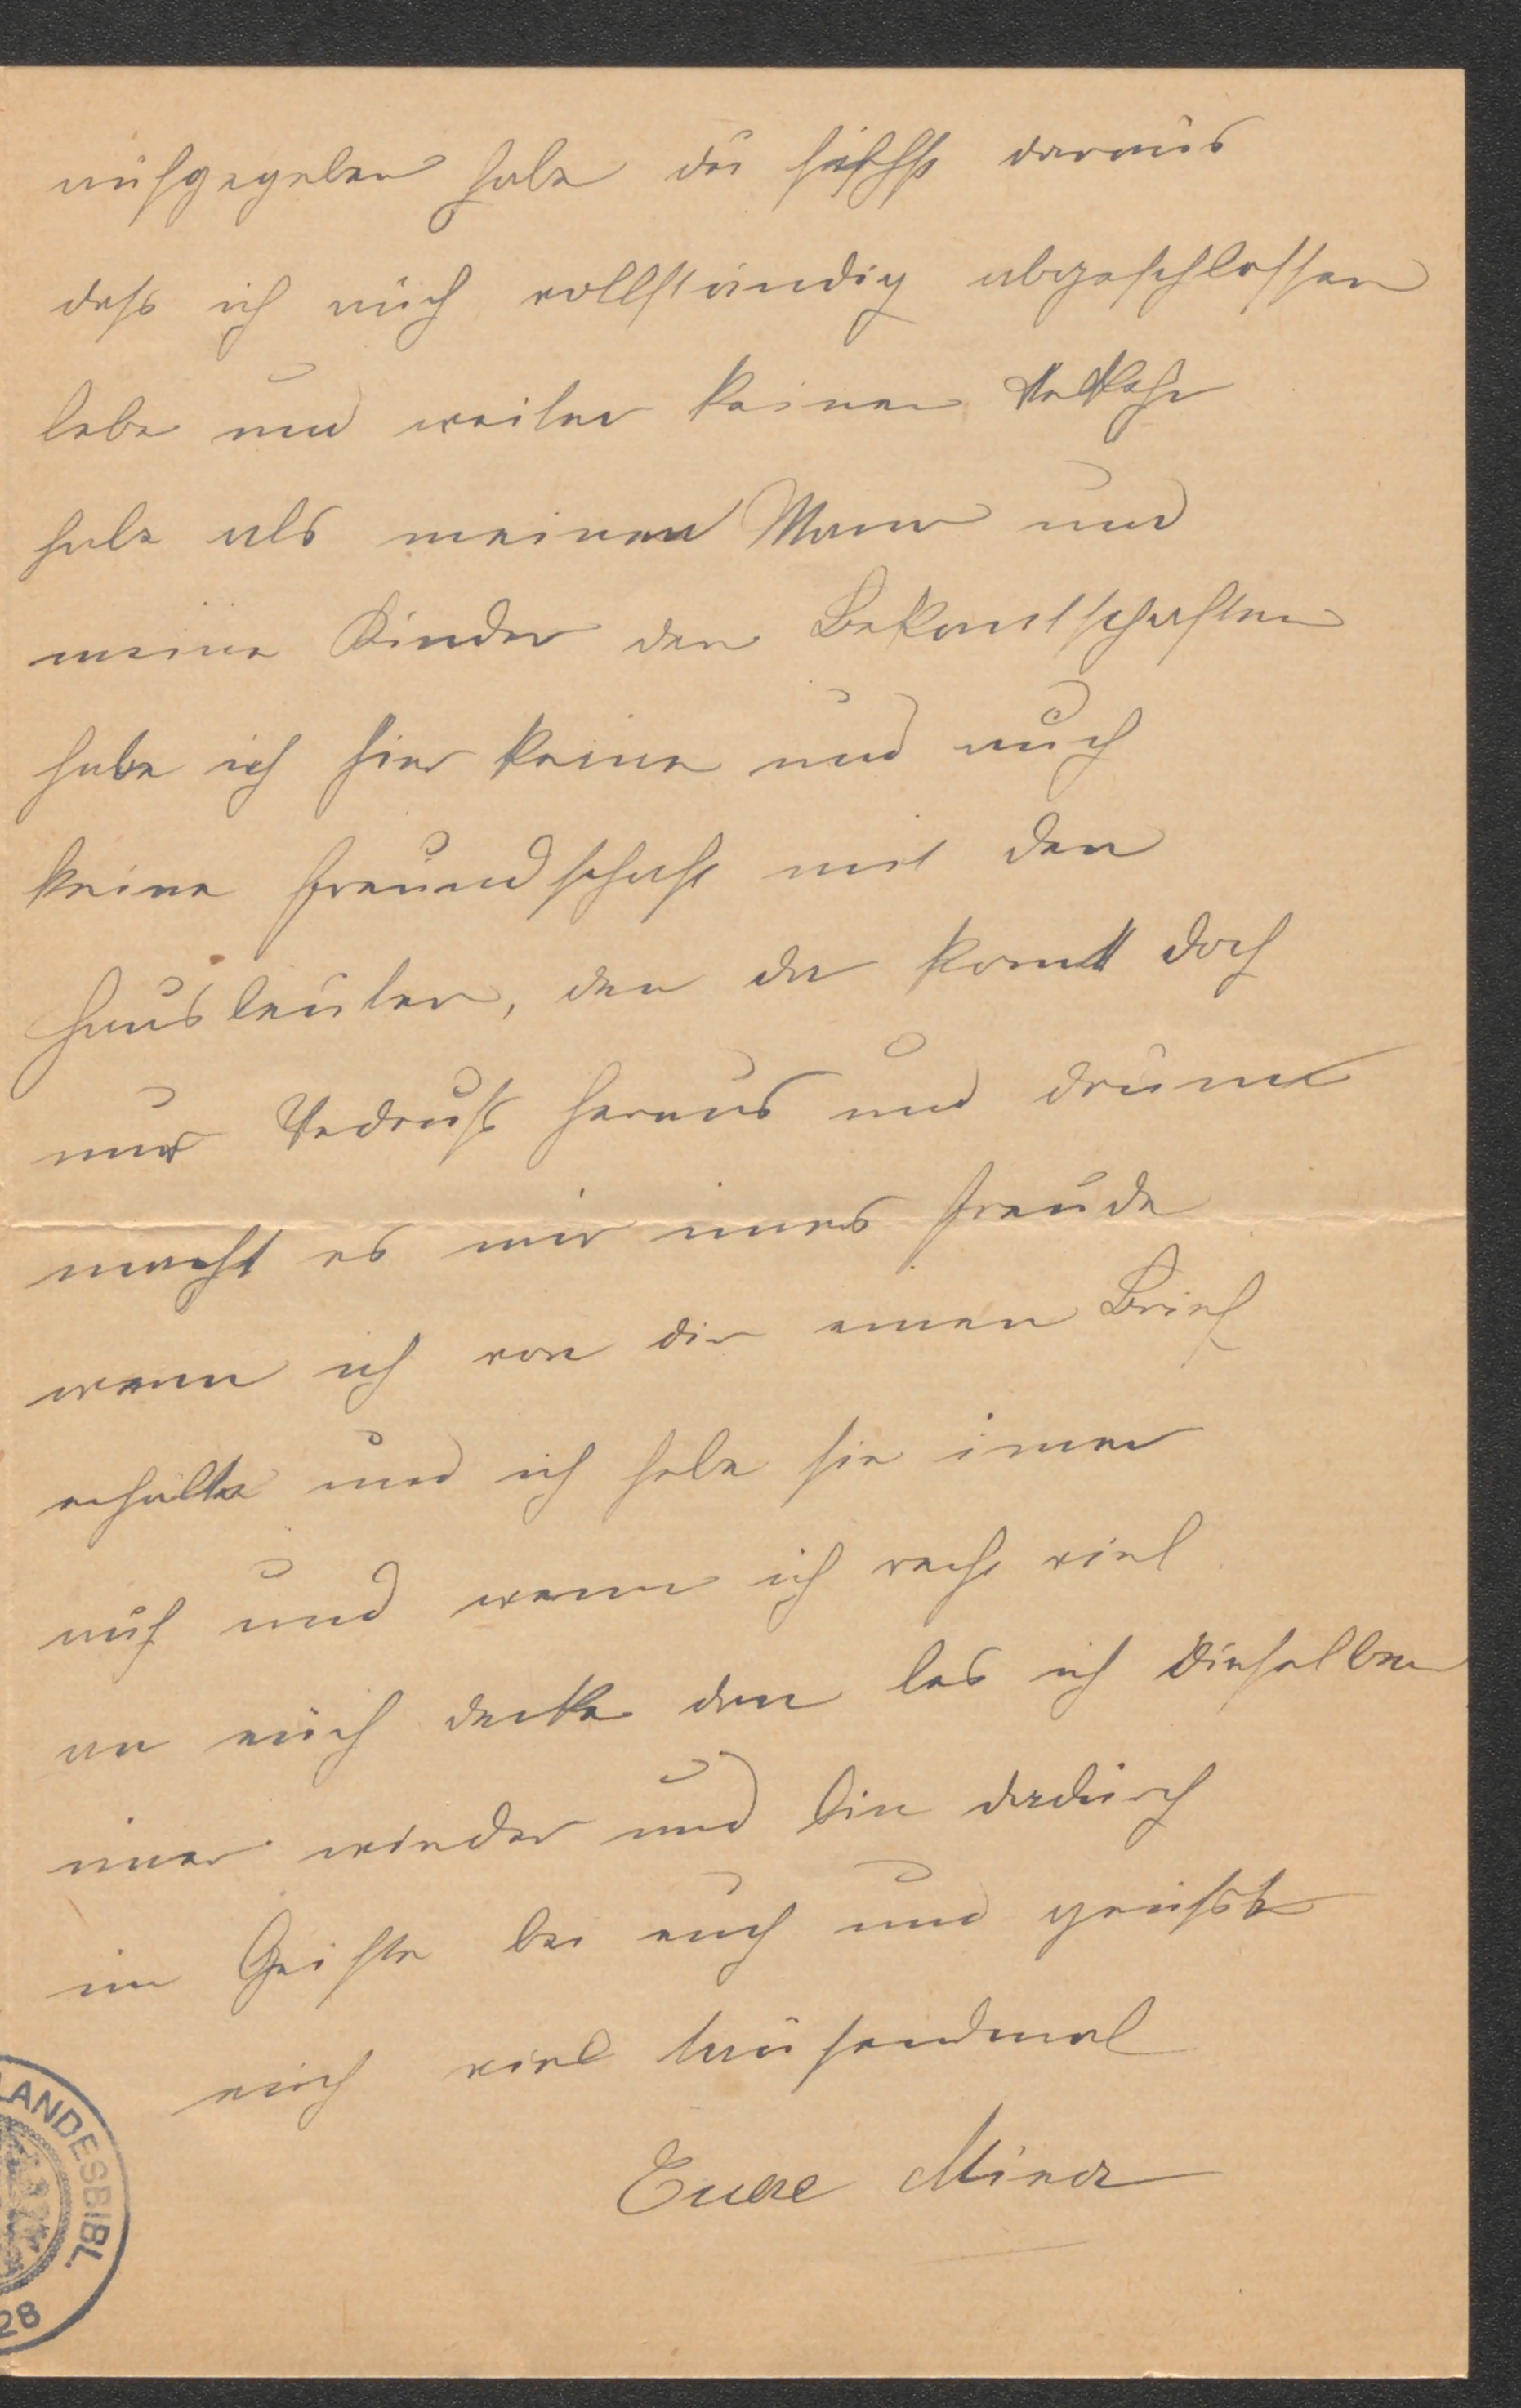 aufgegeben habe du siehst daraus
dass ich mich vollständig abgeschlossen
lebe und weiter keinen Verkehr
habe als meinen Mann und
meine Kinder den Bekantschaften
habe ich hier keine und auch
keine Freundschaft mit den
Hausleuten, den da komt doch
nur Verdruß heraus und drum
macht es mir imer Freude
wenn ich von dir einen Brief
erhalte und ich hebe sie imer
auf und wenn ich recht viel
an euch denke dan les ich dieselben
imer wieder und bin dadurch
im Geiste bei euch und grüsst
euch viel tausendmal
Eure
LANDESBIBL.
28